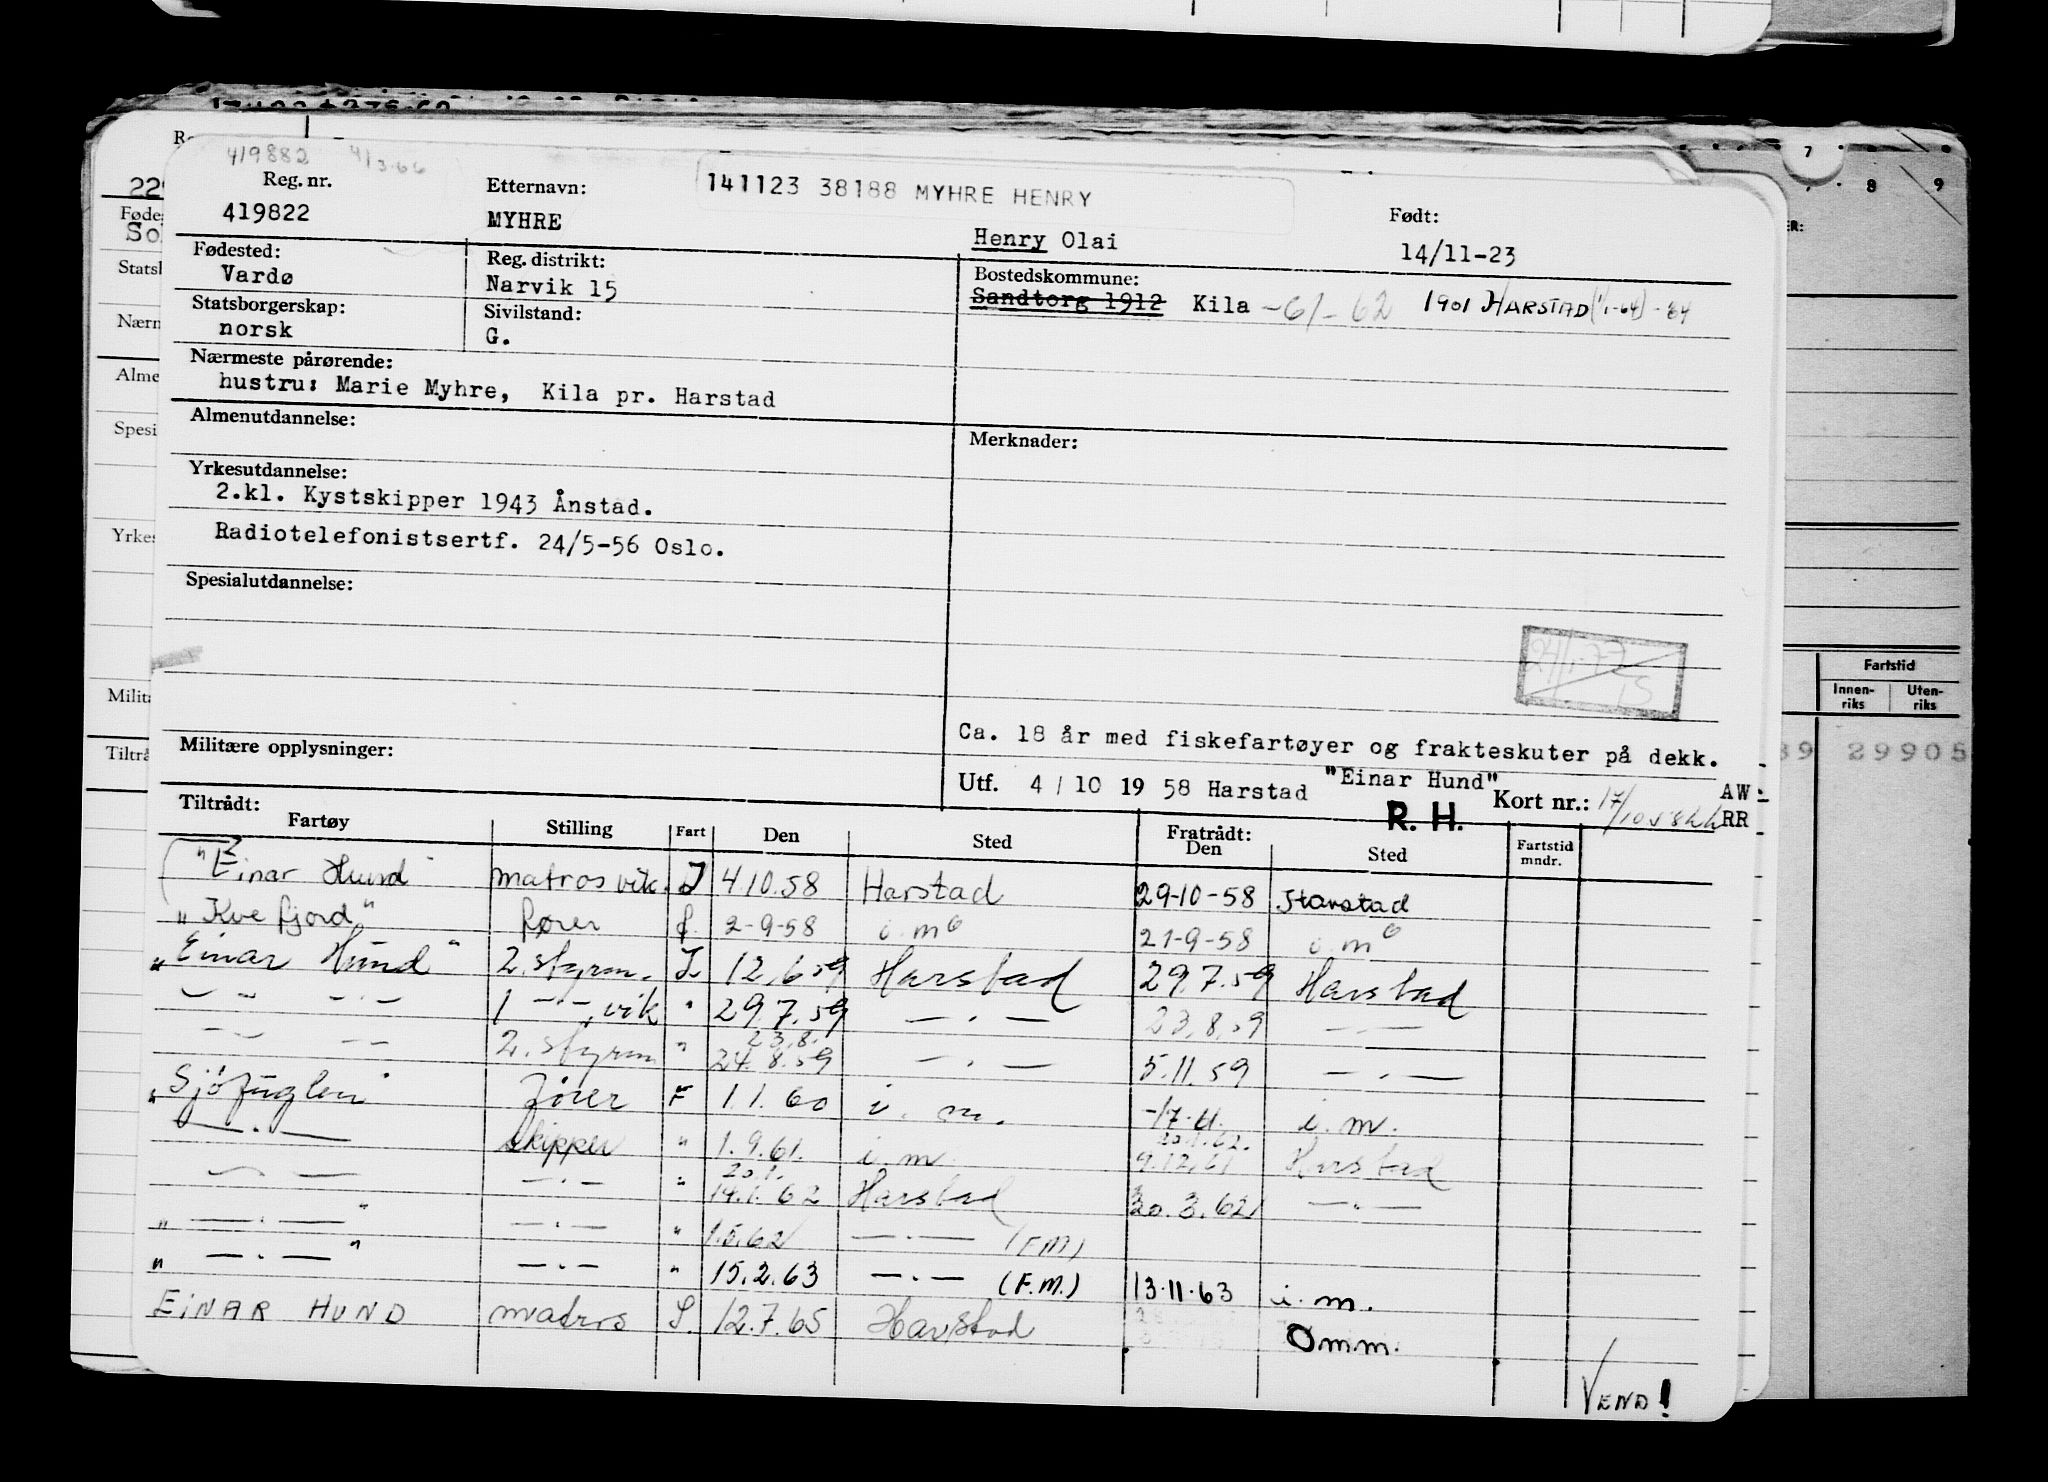 419882 4/3-66
Reg. nr. Etternavn: 141123 38188 MYHRE HENRY Født:
419822 MYHRE Henry Olai 14/11-23
Fødested: Reg. distrikt: Bostedskommune:
Vardø Narvik 15 Sandtorg 1912 Kila -6/-62 1901 HARSTAD (1/1-64) -64
Statsborgerskap: Sivilstand:
norsk G.
Nærmeste pårørende:
hustru: Marie Myhre, Kila pr. Harstad
Almenutdannelse: Merknader:
Yrkesutdannelse:
2.kl. Kystskipper 1943 Ånstad.
Radiotelefonistsertf. 24/5-56 Oslo.
Spesialutdannelse:
24/1-77
15
Militære opplysninger: Ca. 18 år med fiskefartøyer og frakteskuter på dekk.
Utf. 4/10 1958 Harstad "Einar Hund" R. H. Kort nr.: 17/10 58 AW RR
Tiltrådt: Fratrådt:
Fartøy Stilling Fart Den Sted Den Sted Fartstid mndr.
"Einar Hund" matros vik. I 4.10.58 Harstad 29-10-58 Harstad
"Kvefjord" fører f. 2-9-58 i.mº 21-9-58 i.mº
"Einar Hund" 2. styrm. I. 12.6.59 Harstad 29.7.59 Harstad
— " — 1 —"—, vik " 29.7.59 — . — 23.8.59 — . —
— — 2. styrm " 23.8. 24.8.59 — . — 5.11.59 — . —
"Sjöfuglen" fører F 1.1.60 i. m. -17.11. i. m.
— . — skipper " 1.9.61. i. m. 20.1.62. 9.12.61 Harstad
— — — . — " 20.1. 14.1.62 Harstad 30.3.62 — . —
" — . — " — . — " 1.5.62 — . — (F.M)
" — . — " — . — " 15.2.63 — . — (F.M.) 13.11.63 i. m.
EINAR HUND matros I. 12.7.65 Harstad Omm.
VEND!
7 8 9
Fartstid
Innenriks Utenriks
29905